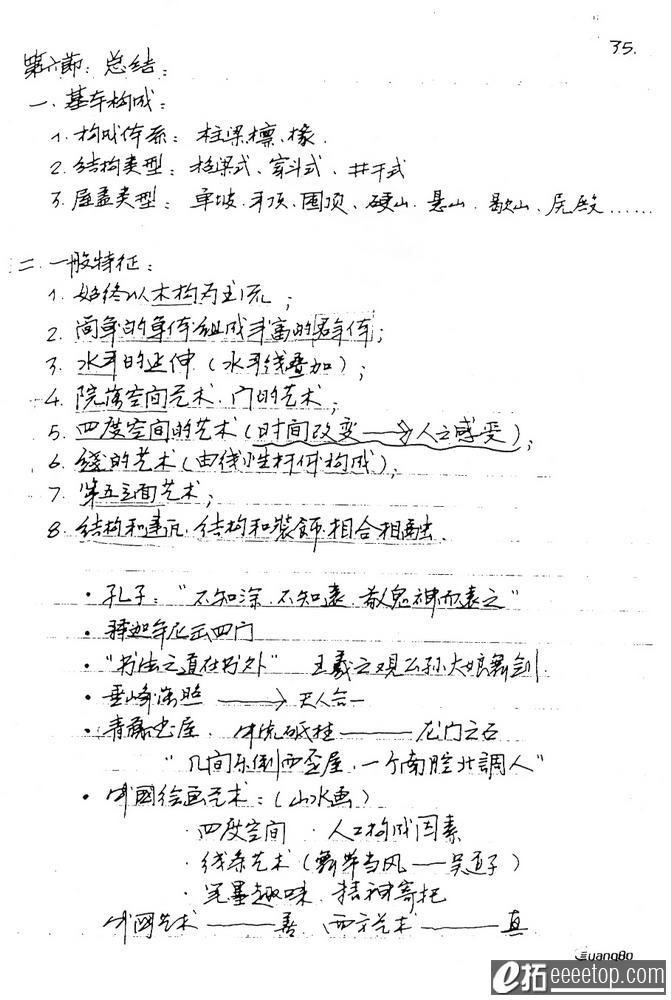 35.
第六節：总结：
一、基本构成：
1. 构成体系：柱梁檩、椽.
2. 结构类型：抬梁式、穿斗式、井干式
3. 屋盖类型：单坡、平顶、囤顶、硬山、悬山、歇山、庑殿……
二、一般特征：
1. 始终以木构为主流；
2. 简单的单体组成丰富的群体；
3. 水平的延伸（水平线叠加）；
4. 院落空间艺术、门的艺术；
5. 四度空间的艺术（时间改变→人之感受）；
6. 线的艺术（由线性杆件构成）；
7. 第五立面艺术；
8. 结构和、结构和装飾相合相融.
· 孔子：“不知深、不知，敬鬼神而之”
· 释迦牟尼 四门
· “书法之道在书外” 王羲之观公孙大娘舞剑.
· 峰 照 → 天人合一
· 青藤书屋、中流砥柱——龙门之石
“几间东倒西歪屋，一个南腔北調人”
· 中國绘画艺术：（山水画）
· 四度空间 · 人工构成因素
· 线条艺术（当风——吴道子）
· 笔墨趣味、精神寄托
中國艺术——善、西方艺术——真
GuangBo
e拓 eeeetop.com